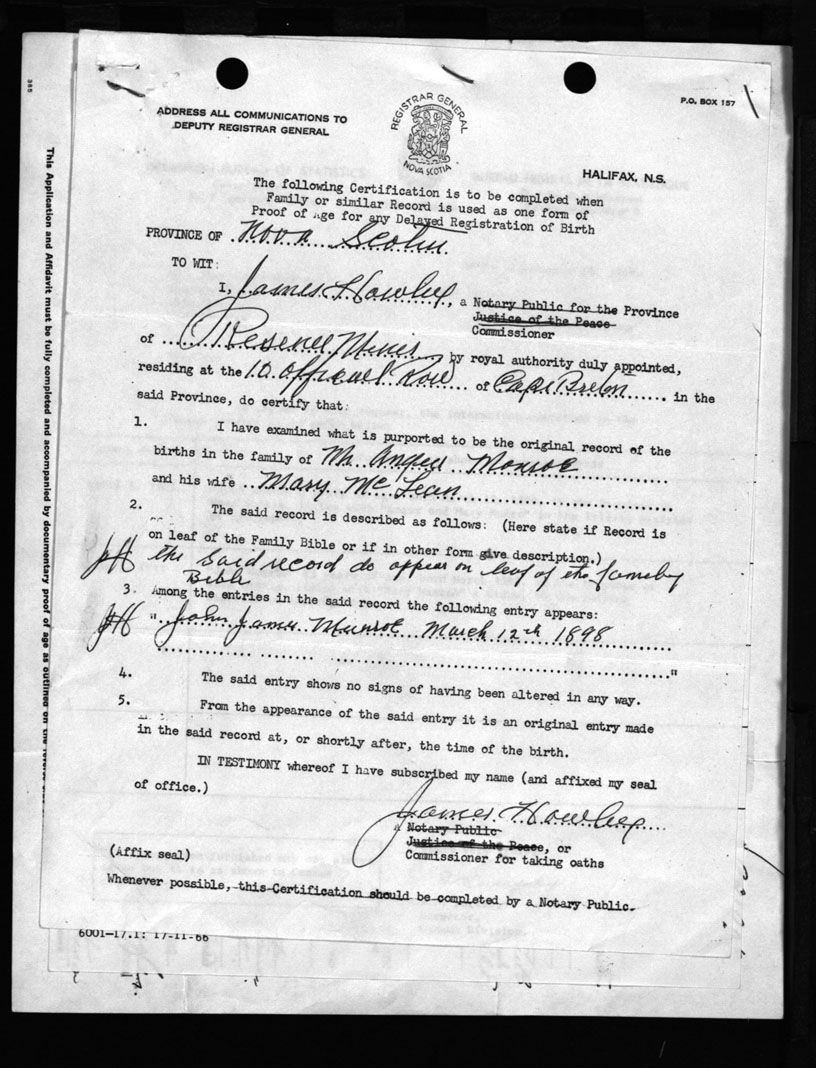 P.O. BOX 157
ADDRESS ALL COMMUNICATIONS TO
DEPUTY REGISTRAR GENERAL
REGISTRAR GENERAL
NOVA SCOTIA
HALIFAX, N.S.
The following Certification is to be completed when
Family or similar Record is used as one form of
Proof of Age for any Delayed Registration of Birth
PROVINCE OF Nova Scotia
TO WIT:
I, James Howley, a Notary Public for the Province
Justice of the Peace
Commissioner
of Reserve Mines by royal authority duly appointed,
residing at the 10 Row of Cape Breton in the
said Province, do certify that:
1. I have examined what is purported to be the original record of the
births in the family of Mr Monroe
and his wife Mary McLean
2. The said record is described as follows: (Here state if Record is
on leaf of the Family Bible or if in other form give description.)
JH the said record do appear on leaf of the family
Bible
3. Among the entries in the said record the following entry appears:
JH " John James Munroe March 12th 1898
"
4. The said entry shows no signs of having been altered in any way.
5. From the appearance of the said entry it is an original entry made
in the said record at, or shortly after, the time of the birth.
IN TESTIMONY whereof I have subscribed my name (and affixed my seal
of office.)
James Howley
a Notary Public
Justice of the Peace, or
Commissioner for taking oaths
(Affix seal)
Whenever possible, this Certification should be completed by a Notary Public.
6001-17.1: 17-11-66
385
This Application and Affidavit must be fully completed and accompanied by documentary proof of age as outlined on the